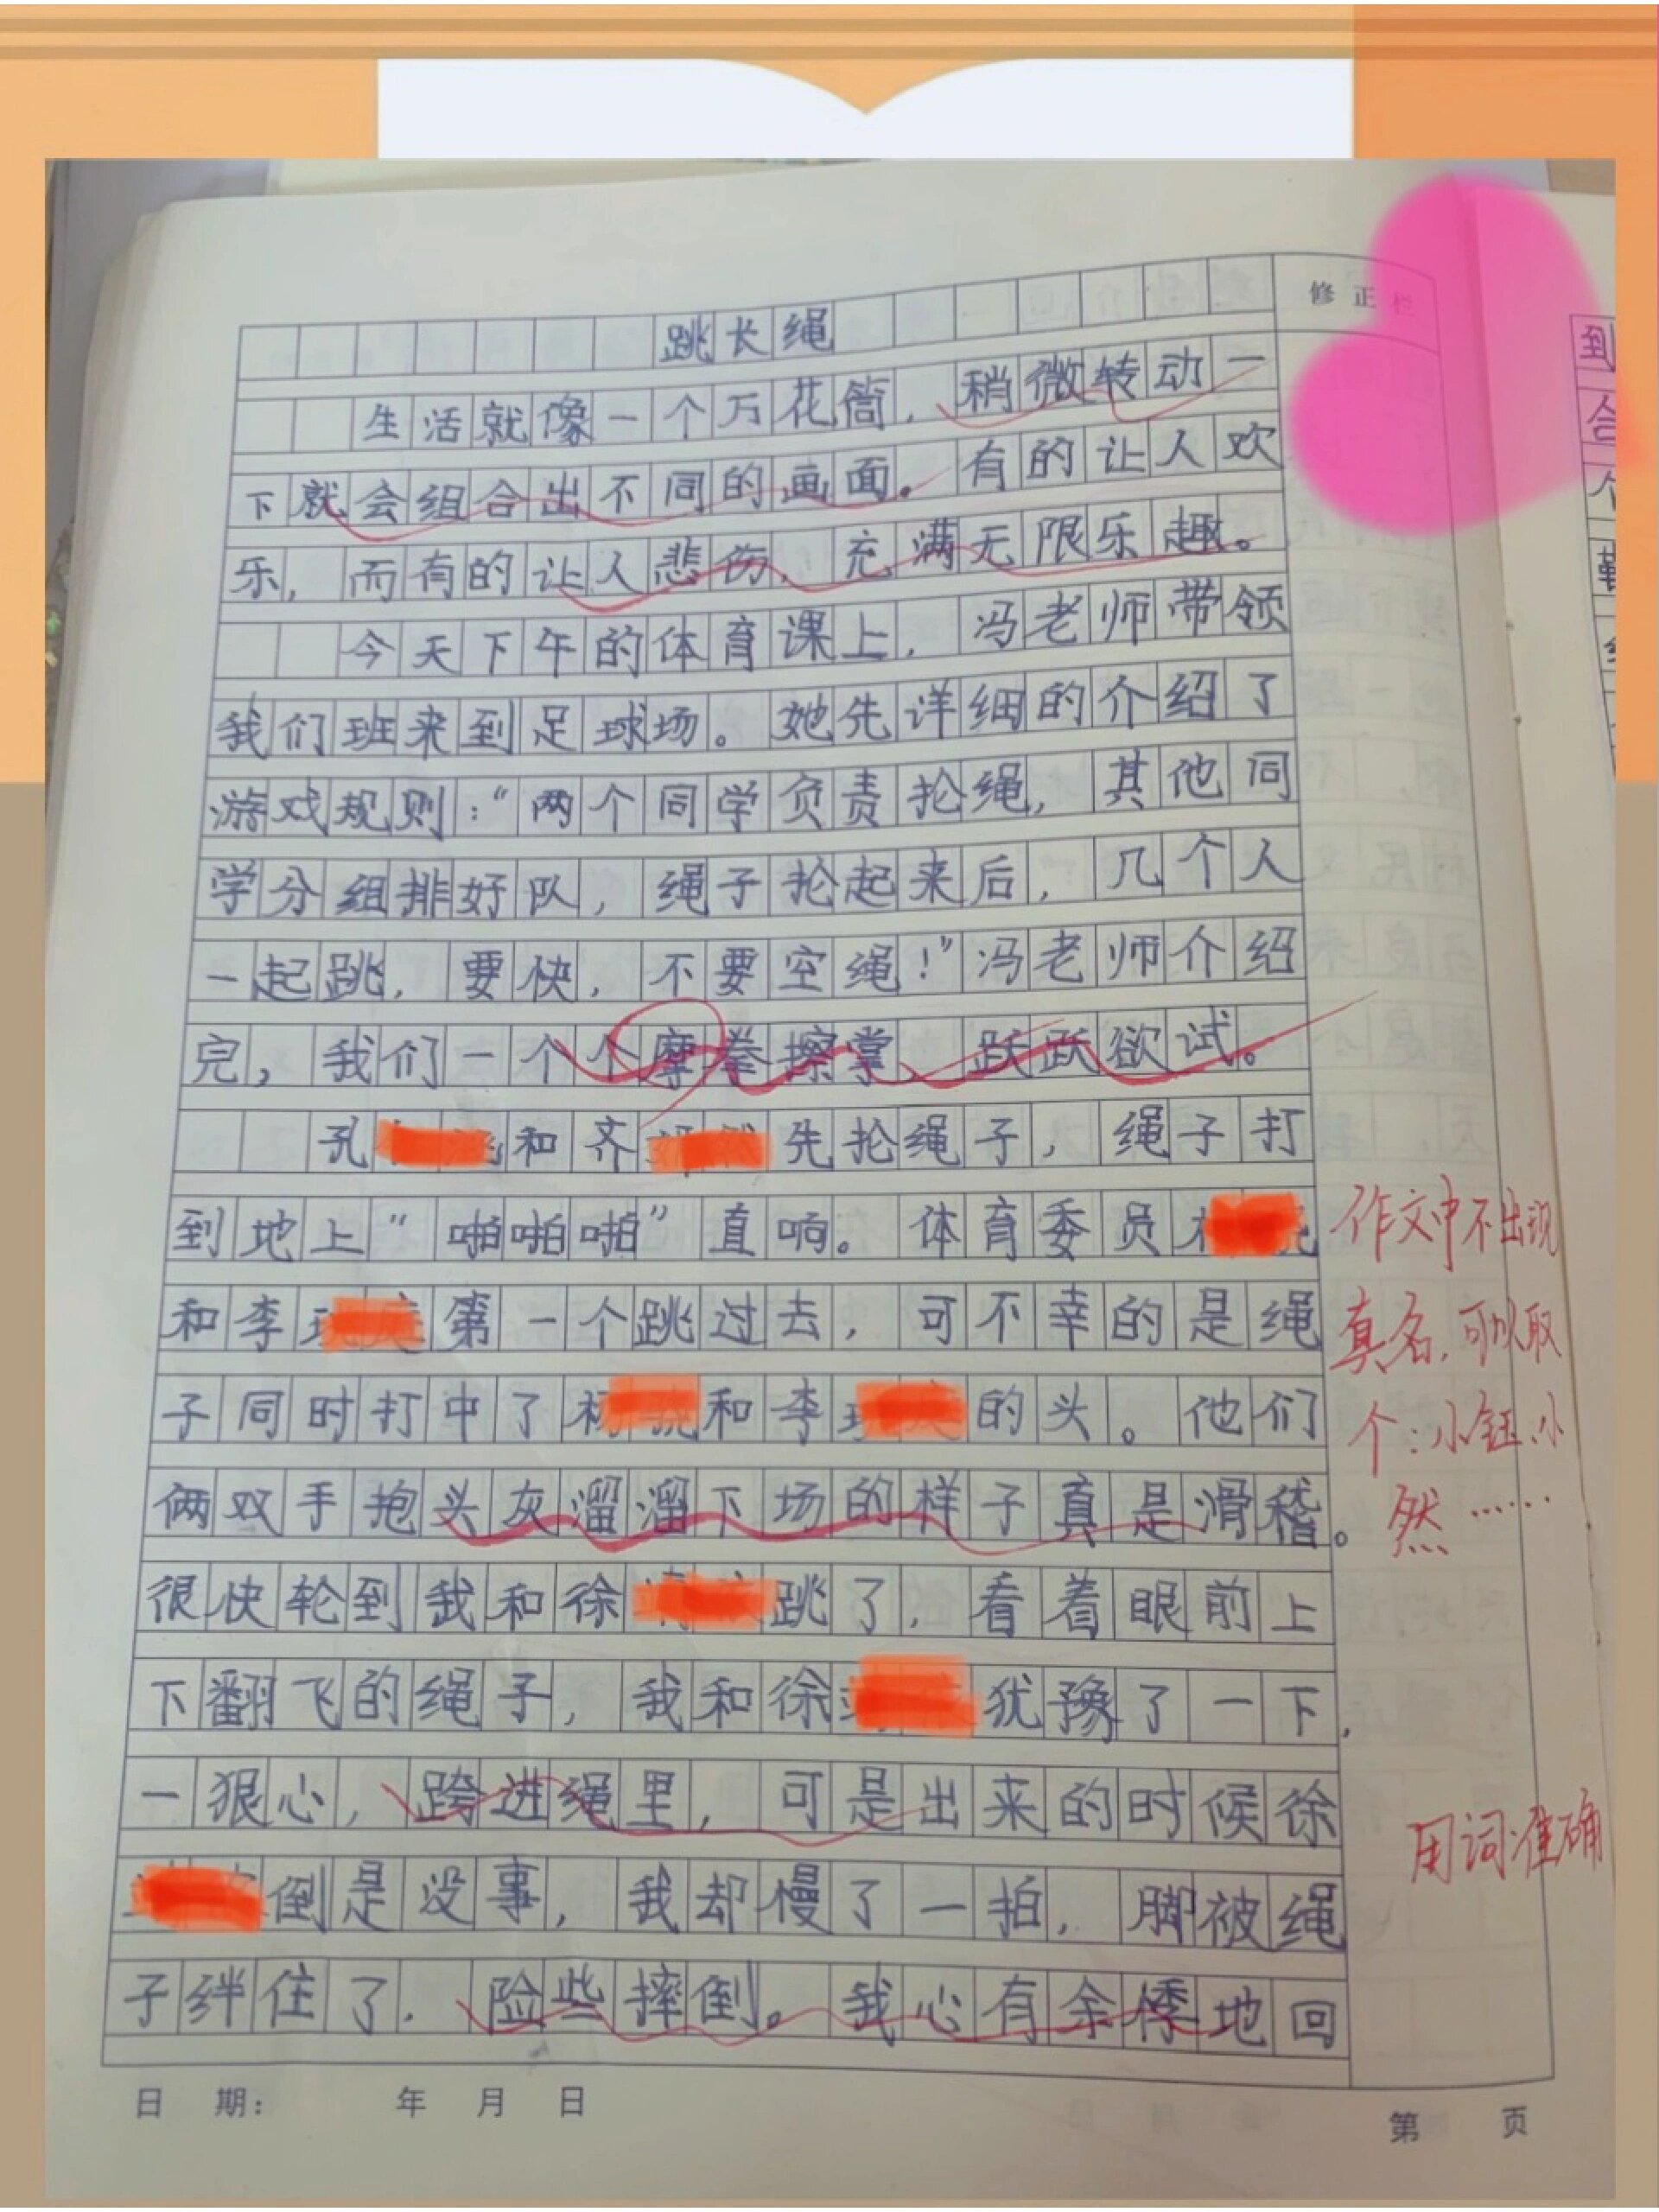 修正栏
跳长绳
生活就像一个万花筒，稍微转动一
下就会组合出不同的画面。有的让人欢
乐，而有的让人悲伤，充满无限乐趣。
今天下午的体育课上，冯老师带领
我们班来到足球场。她先详细的介绍了
游戏规则：“两个同学负责抡绳，其他同
学分组排好队，绳子抡起来后，几个人
一起跳，要快，不要空绳！”冯老师介绍
完，我们一个个摩拳擦掌，跃跃欲试。
孔和齐先抡绳子，绳子打
到地上“啪啪啪”直响。体育委员
和李第一个跳过去，可不幸的是绳
子同时打中了杨和李的头。他们
俩双手抱头灰溜溜下场的样子真是滑稽。
很快轮到我和徐跳了，看着眼前上
下翻飞的绳子，我和徐犹豫了一下，
一狠心，跨进绳里，可是出来的时候徐
倒是没事，我却慢了一拍，脚被绳
子绊住了，险些摔倒。我心有余悸地回
作文中不出现
真名，可以取
个：小钰、小
然……
用词准确
日期： 年 月 日
第 页
到
合
个